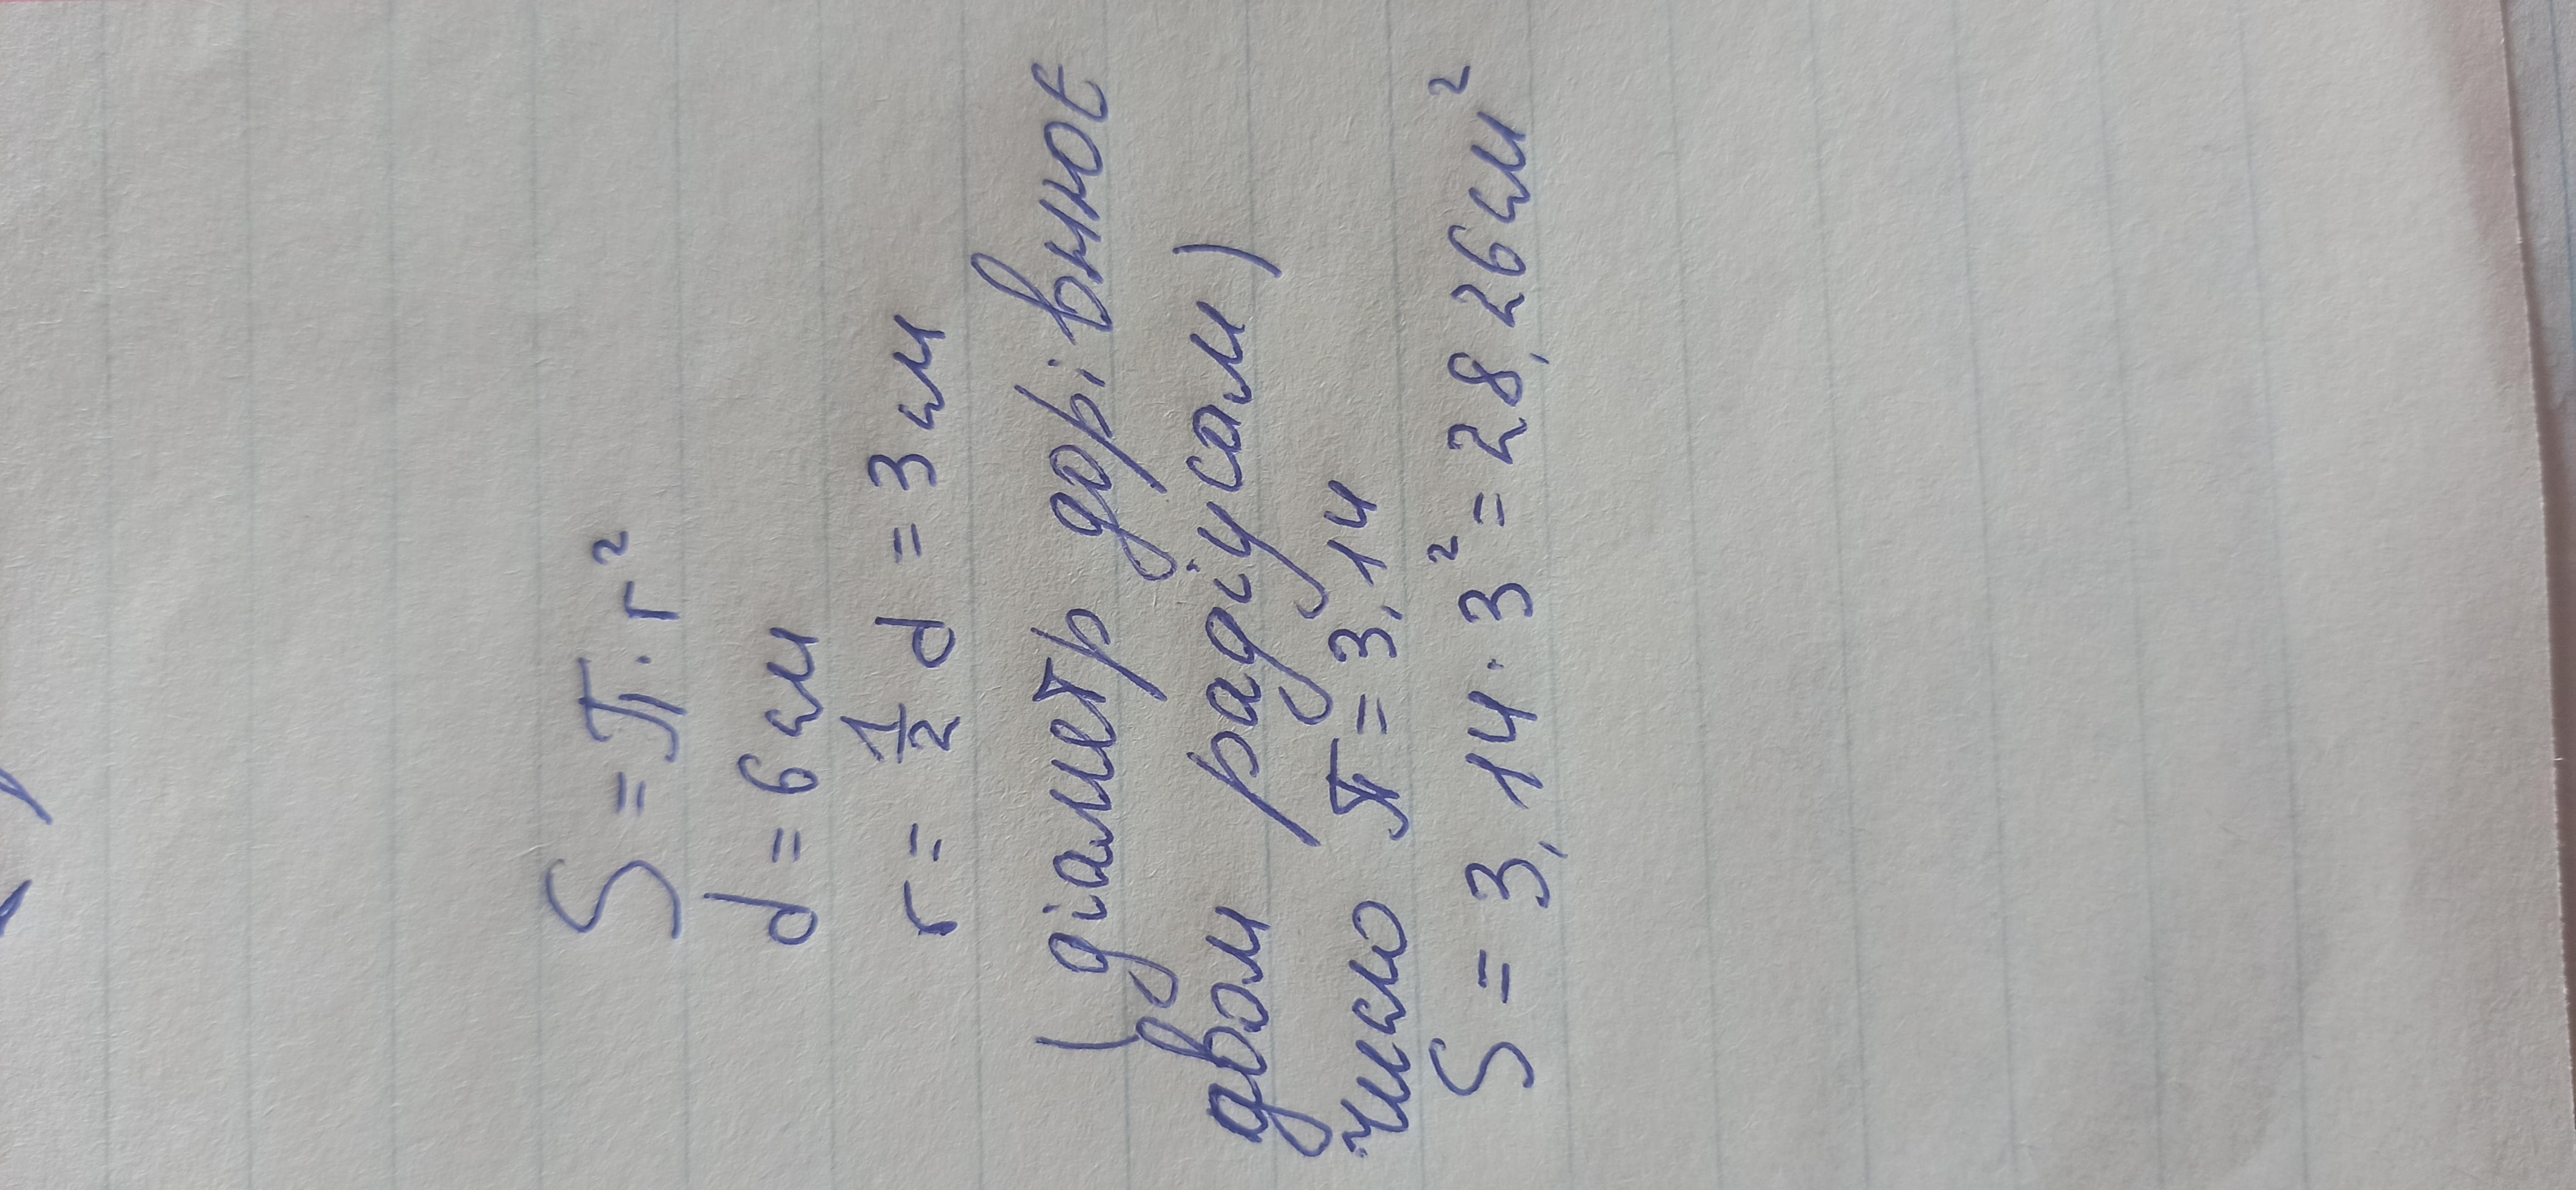 S = π · r²
d = 6 см
r = 1/2 d = 3 см
(діаметр дорівнює
двом радіусам)
число π = 3,14
S = 3,14 · 3² = 28,26 см²